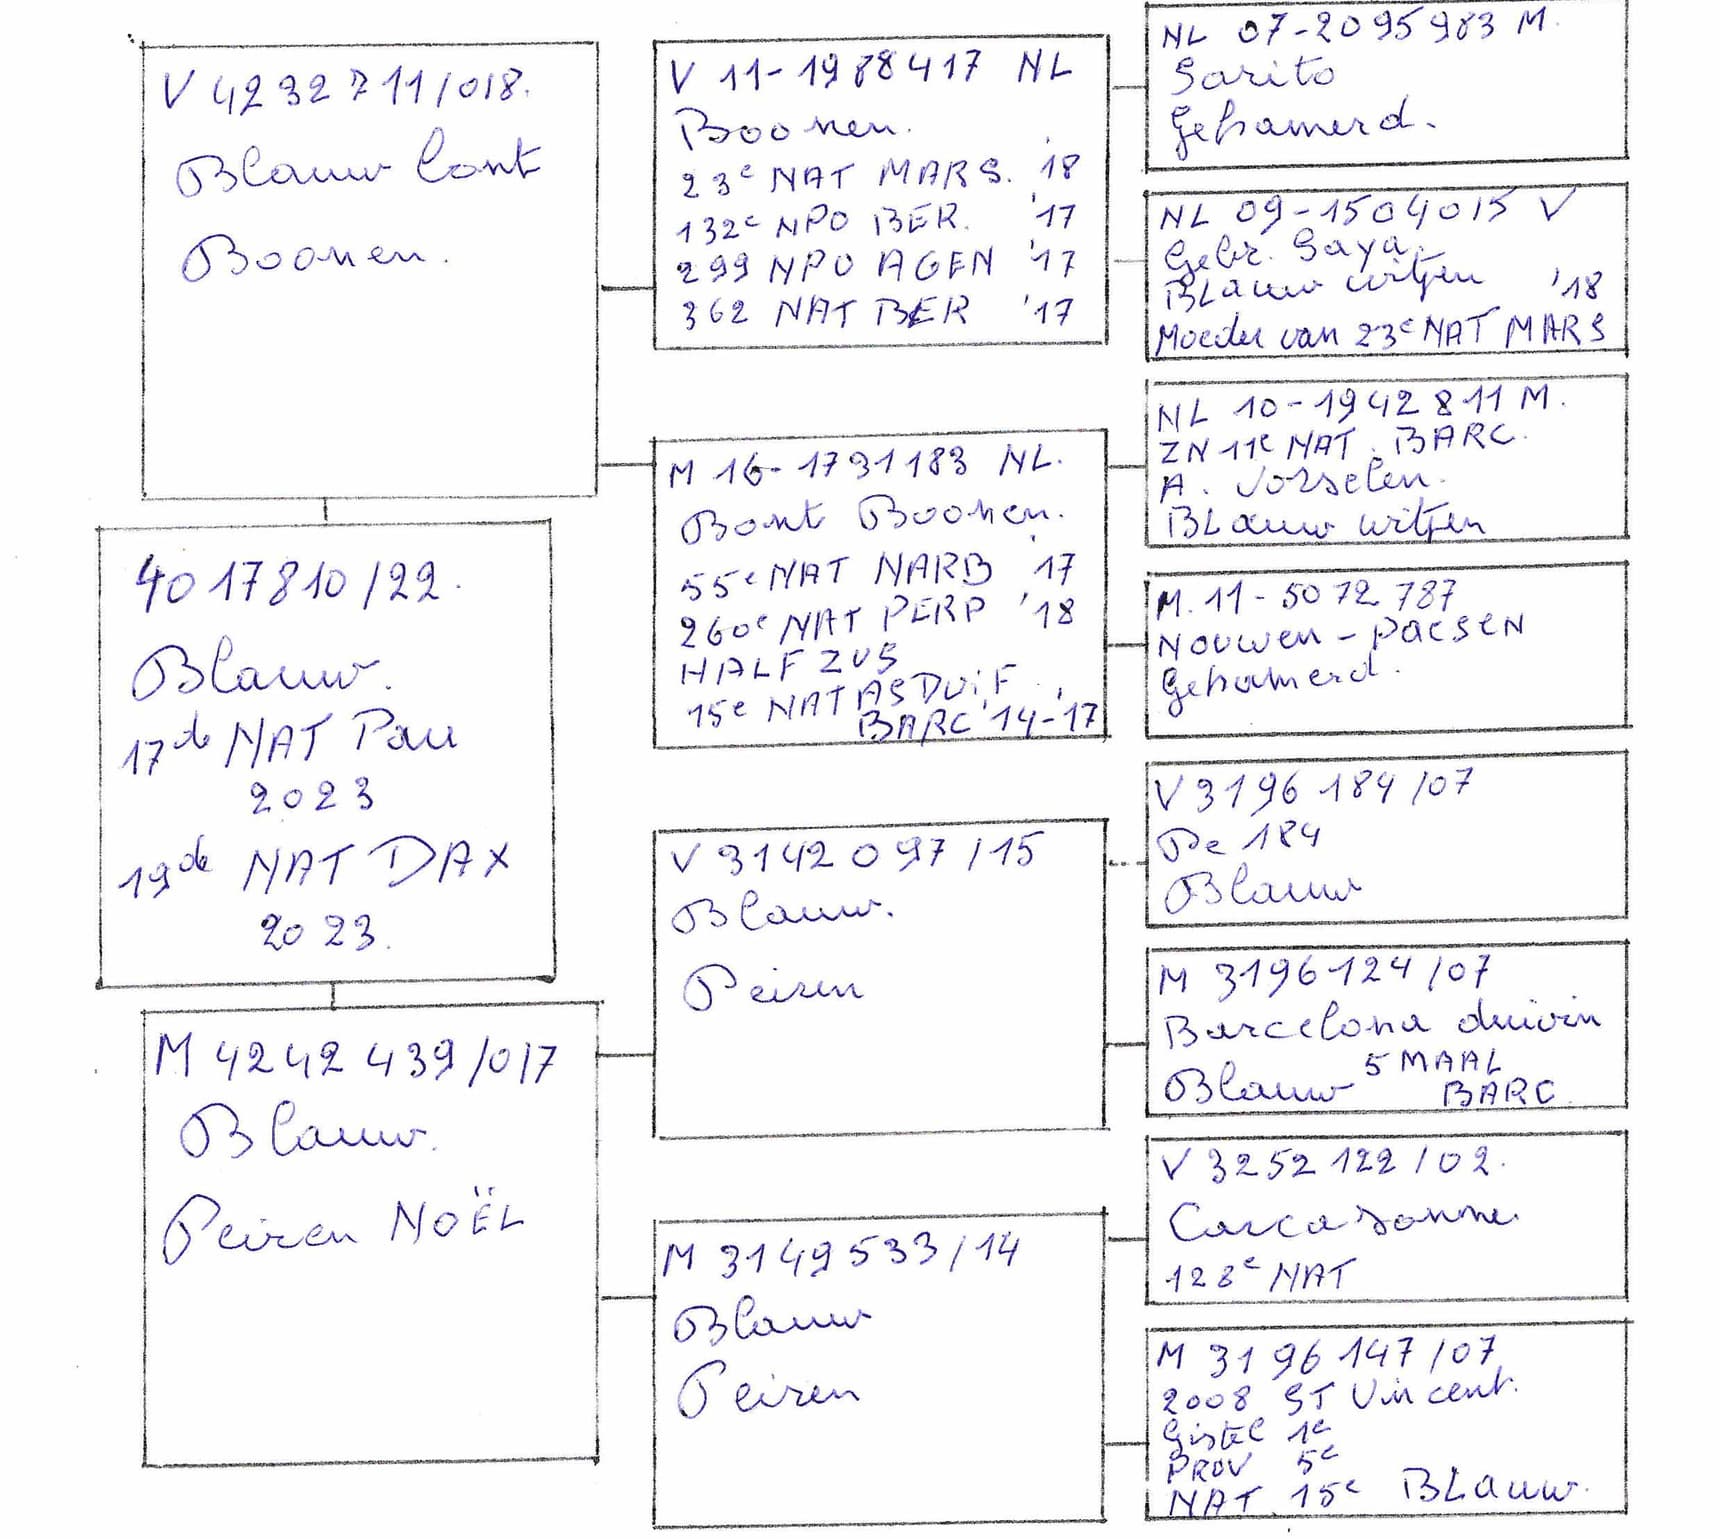 V 4232711/018.
Blauw Bont
Boonen.
4017810/22.
Blauw.
17de NAT Pau
2023
19de NAT DAX
2023.
M 4242439/017
Blauw.
Peiren NOËL
V 11-1988417 NL
Boonen.
23e NAT MARS. '18
132e NPO BER. '17
299 NPO AGEN '17
362 NAT BER '17
M 16-1731183 NL.
Bont Boonen.
55e NAT NARB '17
260e NAT PERP '18
HALF ZUS
15e NAT ASDUIF
BARC '14-'17
V 3142097/15
Blauw.
Peiren
M 3149533/14
Blauw
Peiren
NL 07-2095983 M.
Sarito
Gehamerd.
NL 09-1504015 V
Gebr. Saya.
BLauw witpen '18
Moeder van 23e NAT MARS
NL 10-1942811 M.
ZN 11e NAT. BARC.
A. Vorselen.
BLauw witpen
M. 11-5072787
NOUWEN-PAESEN
Gehamerd.
V 3196184/07
De 184
Blauw
M 3196124/07
Barcelona duivin
Blauw 5 MAAL
BARC.
V 3252122/02.
Carcasonne
128e NAT
M 3196147/07
2008 ST Vincent.
Gistel 1e
PROV 5e
NAT 15e BLauw.